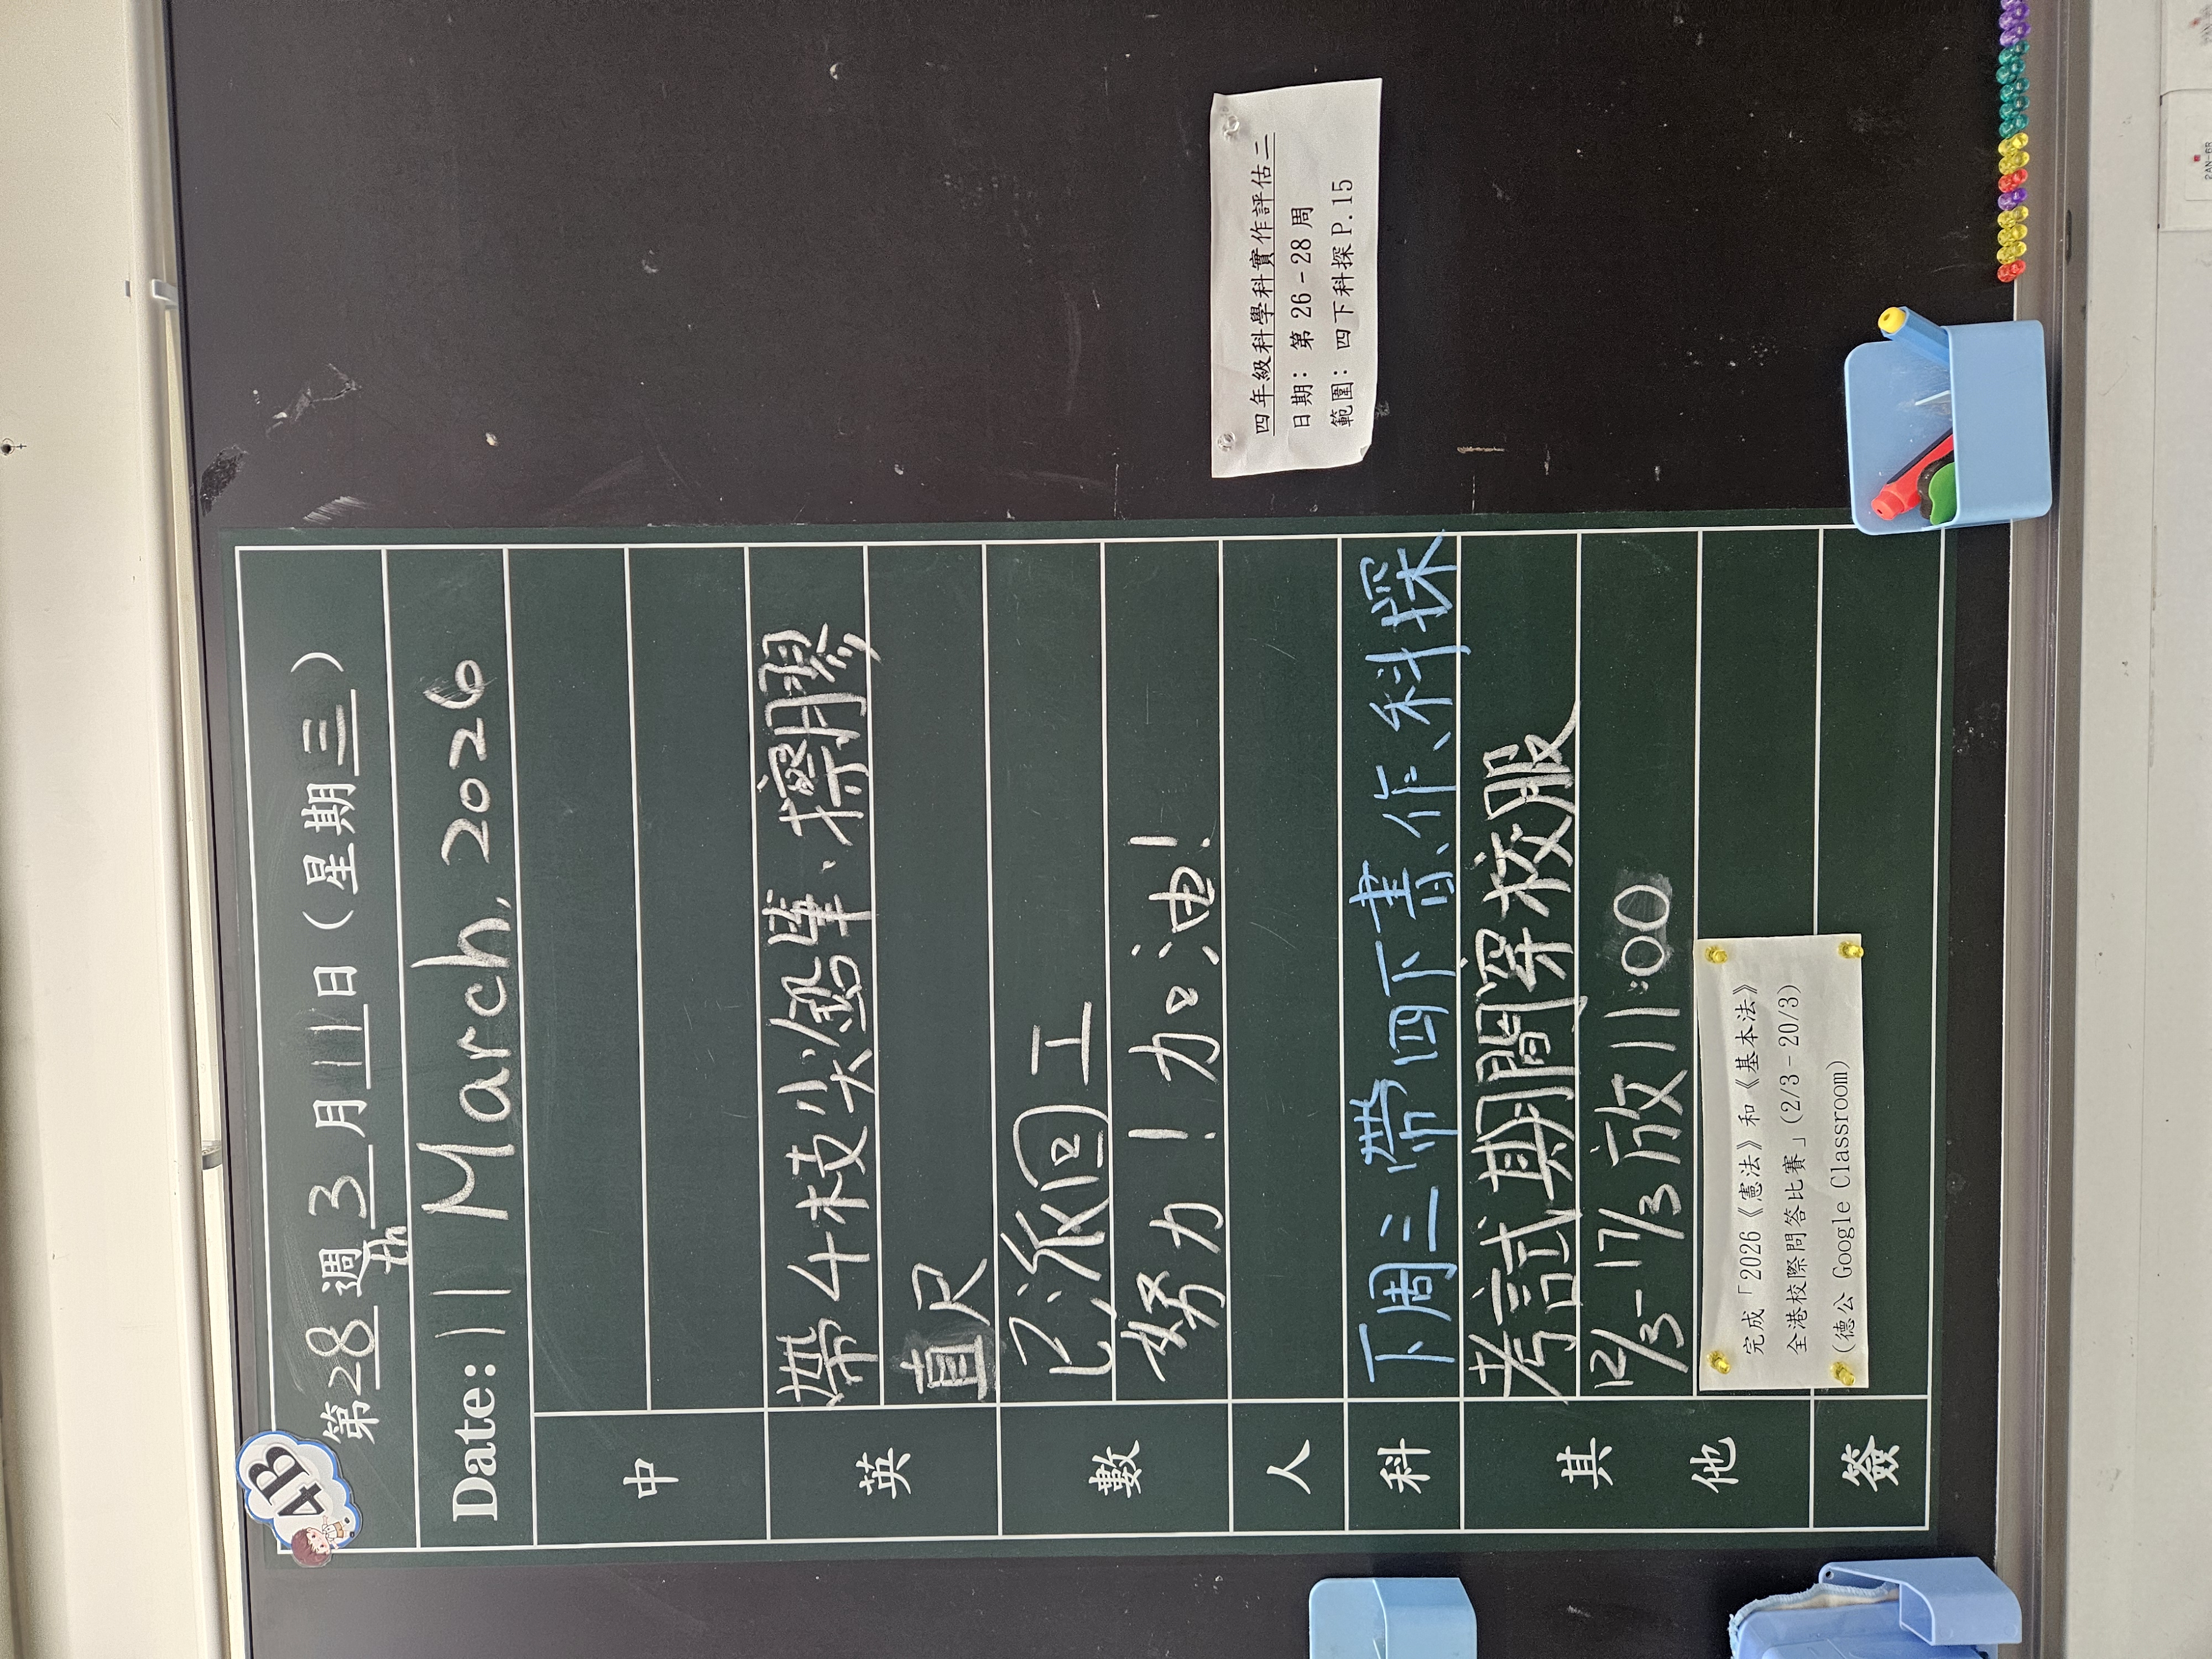 4B
第28週3月11日（星期三）
Date: 11th March, 2026
中
英
帶4枝尖鉛筆、擦膠
直尺
數
已派回工
努力！加油！
人
科
下周三帶四下書、作、科探
其他
考試期間穿校服
12/3-17/3放11:00
完成「2026《憲法》和《基本法》
全港校際問答比賽」(2/3-20/3)
(德公 Google Classroom)
簽
四年級科學科實作評估二
日期：第 26-28 周
範圍：四下科探 P.15